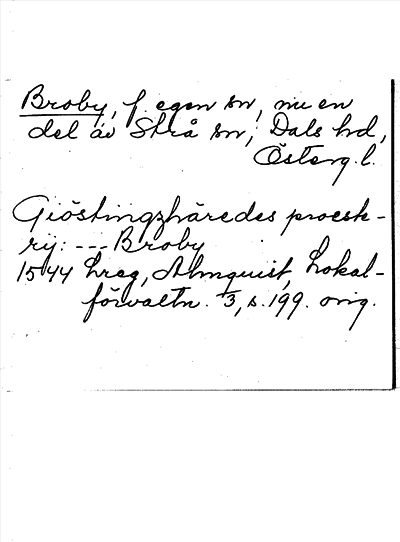 Broby, f. egen sn, nu en
del av Strå sn, Dals hd,
Österg. l.
Giöstingzhäredes proest-
rij: --- Broby
1544 hreg, Almquist, Lokal-
förvaltn. 3, s. 199. orig.